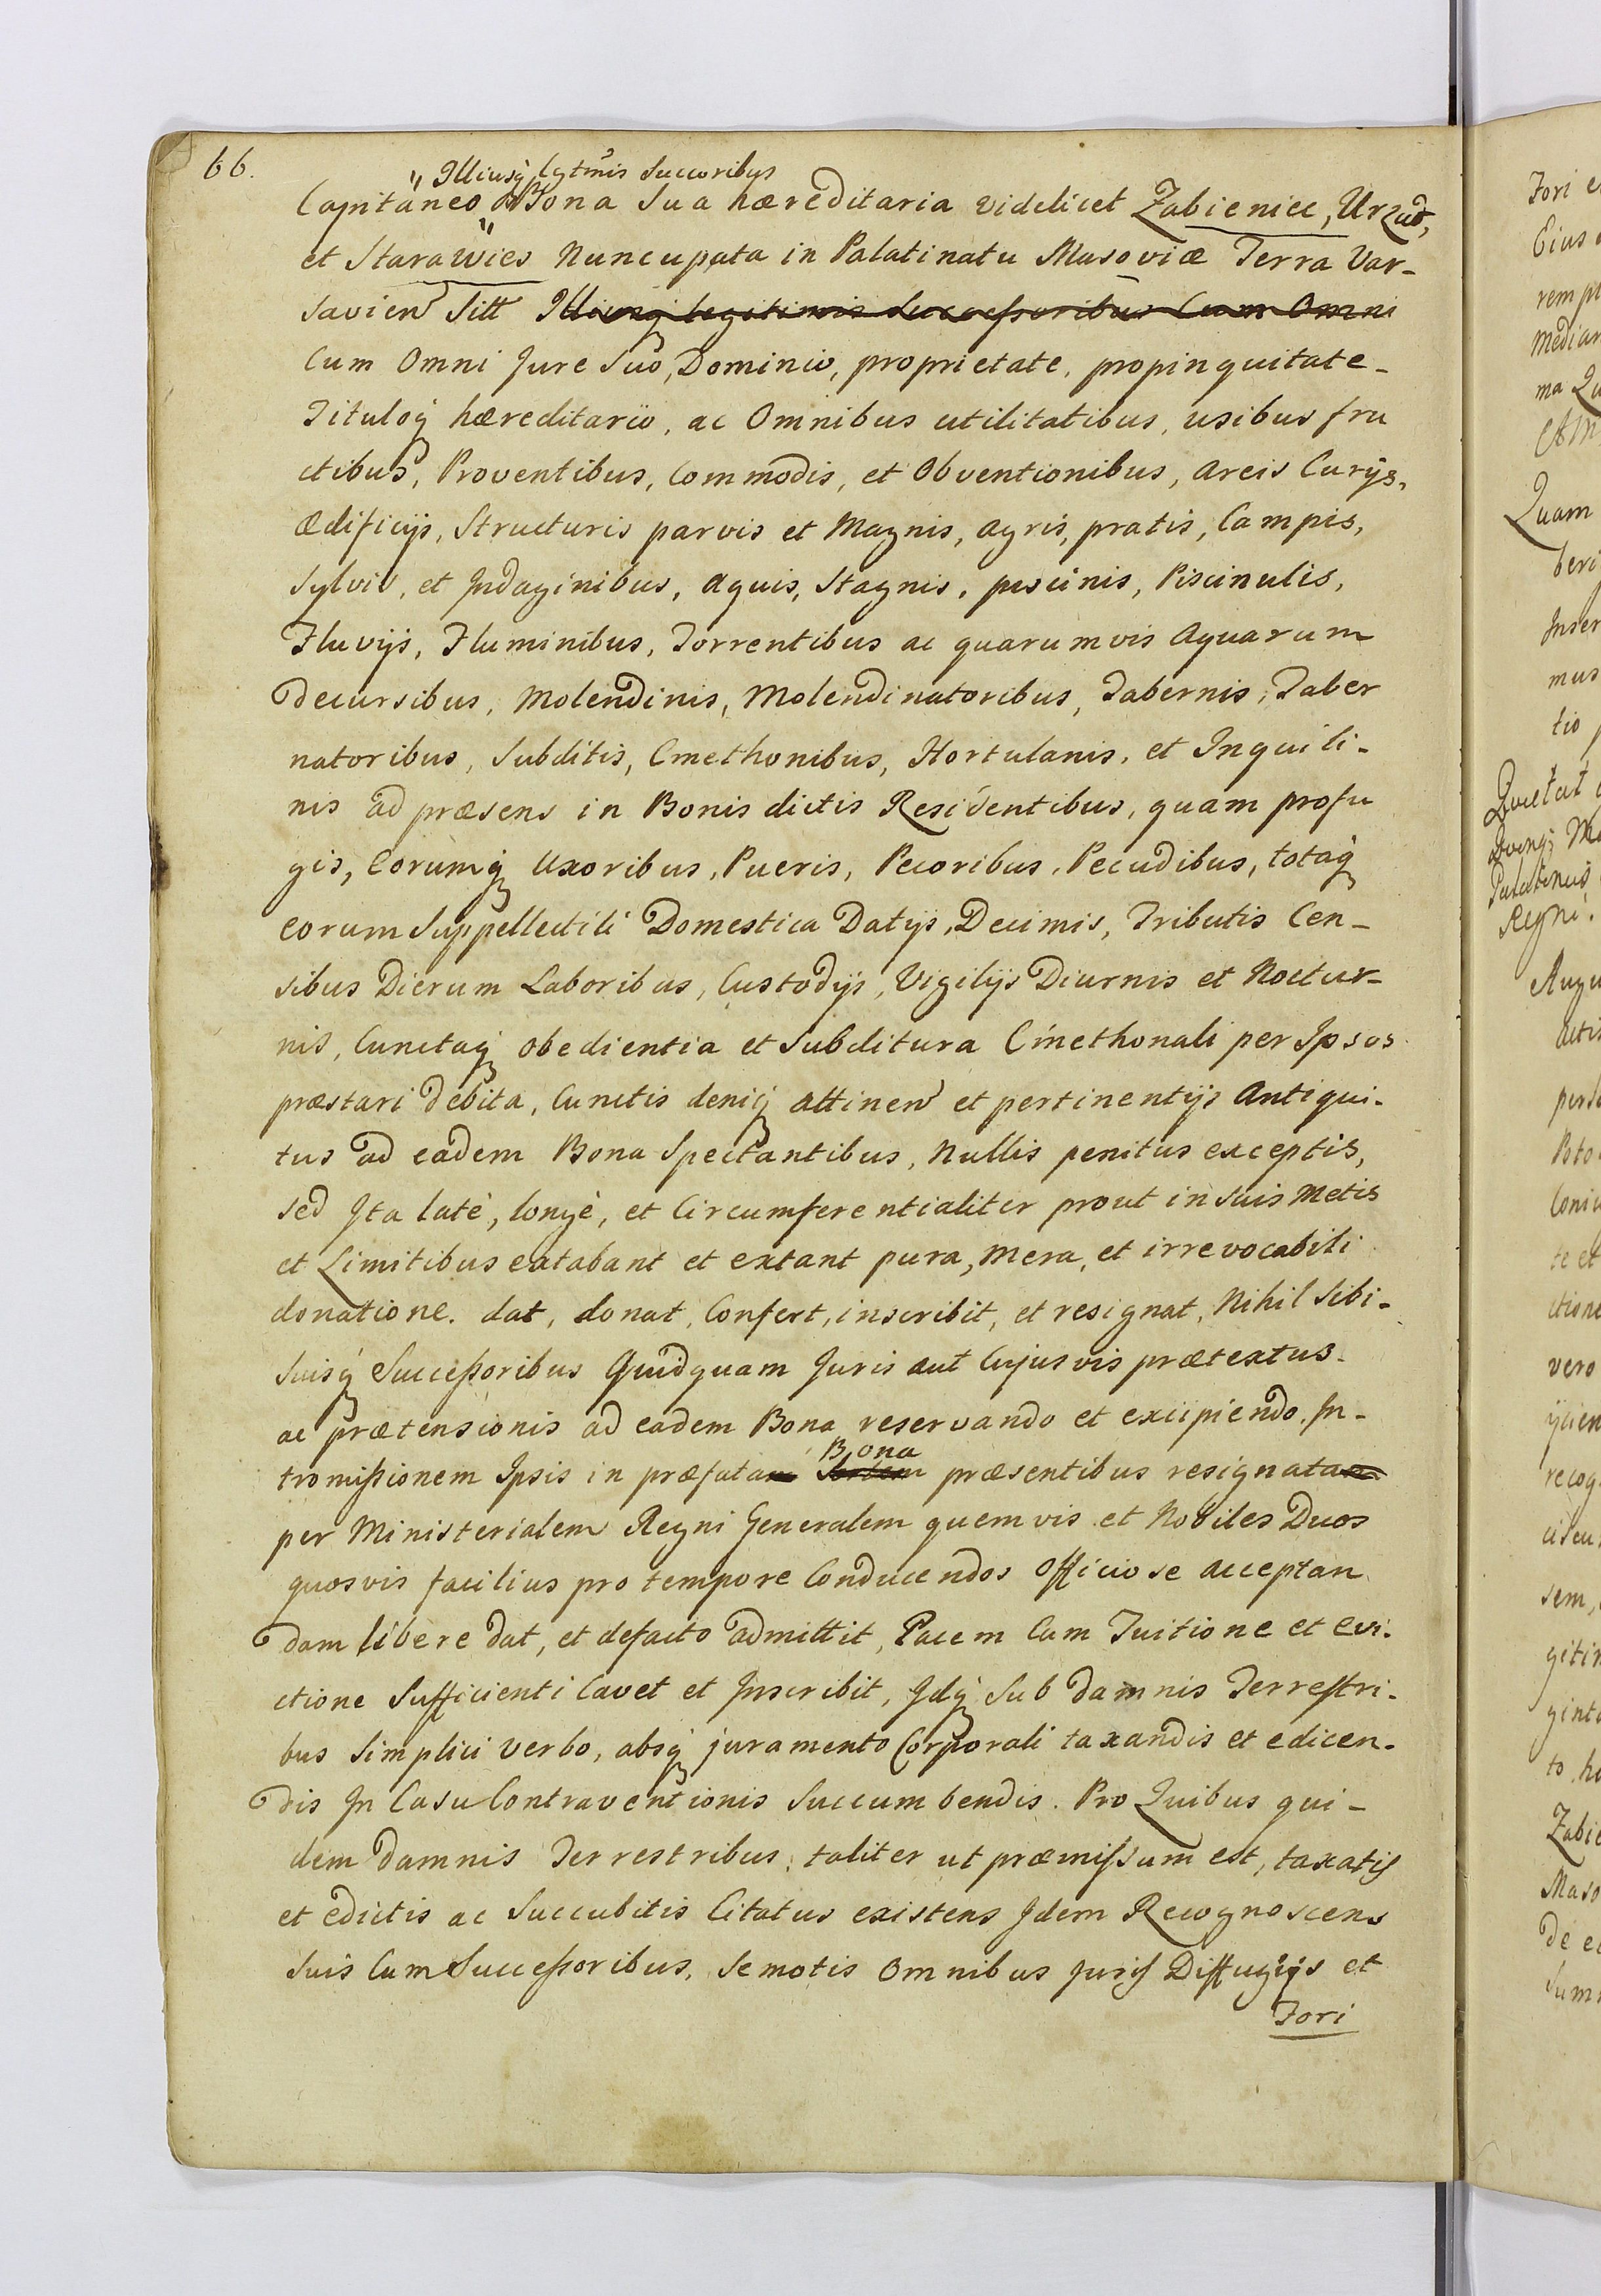 66.
Illiusq́ lgtmis Succoribus
Capitaneo Bona Sua hæreditaria videlicet Zabieniec, Urzad,
et Starawies Nuncupata in Palatinatu Masoviæ Terra Var-
savien Sitt Illiusq́ legitimis Successoribus Cum Omni
Cum Omni Jure Suo, Dominio, proprietate, propinquitate-
Tituloq́ hæreditario, ac Omnibus utilitatibus, usibus fru
ctibus, Proventibus, Commodis, et Obventionibus, areis Curijs,
Ædificijs, Structuris parvis et Magnis, agris, pratis, Campis,
Sylvis, et Indaginibus, aquis, Stagnis, piscinis, Piscinulis,
Fluvijs, Fluminibus, Torrentibus ac quarumvis Aquarum
Decursibus, Molendinis, Molendinatoribus, Tabernis, Taber
natoribus, Subditis, Cmethonibus, Hortulanis, et Inquili-
nis ad præsens in Bonis dictis Residentibus, quam profu
gis, Eorumq́ Uxoribus, Pueris, Pecoribus, Pecudibus, totaq́
eorum Suppellectili Domestica Datijs, Decimis, Tributis Cen-
sibus Dierum Laboribus, Custodijs, Vigilijs Diurnis et Noctur-
nis, Cunctaq́ obedientia et Subditura Cmethonali per Ipsos
præstari debita, Cunctis deniq́ attinen et pertinentijs Antiqui-
tus ad eadem Bona Spectantibus, Nullis penitus exceptis,
sed Ita latè, longè, et Circumferentialiter prout in suis Metis
et Limitibus extabant et extant pura, mera, et irrevocabili
donatione. dat, donat, Confert, inscribit, et resignat, Nihil Sibi-
Suisq́ Successoribus Quidquam Juris aut Cujusvis prætextus-
ac prætensionis ad eadem Bona reservando et excipiendo. In-
Bona
tromissionem Ipsis in præfatam Sortem præsentibus resignatam
per Ministerialem Regni Generalem quemvis et Nobiles Duos
quosvis facilius pro tempore Conducendos Officiose acceptan
dam libere dat, et defacto admittit, Pacem Cum Tuitione et evi-
ctione Sufficienti Cavet et Inscribit, Idq́ Sub damnis Terrestri-
bus Simplici verbo, absq́ juramento Corporali taxandis et edicen-
dis In Casu Contraventionis Succumbendis. Pro Quibus qui-
dem Damnis Terrestribus, taliter ut præmissum est, taxatis
et edictis ac Succubitis Citatus existens Idem Recognoscens
Suis Cum Successoribus, Semotis Omnibus Juris Diffugijs et
Fori